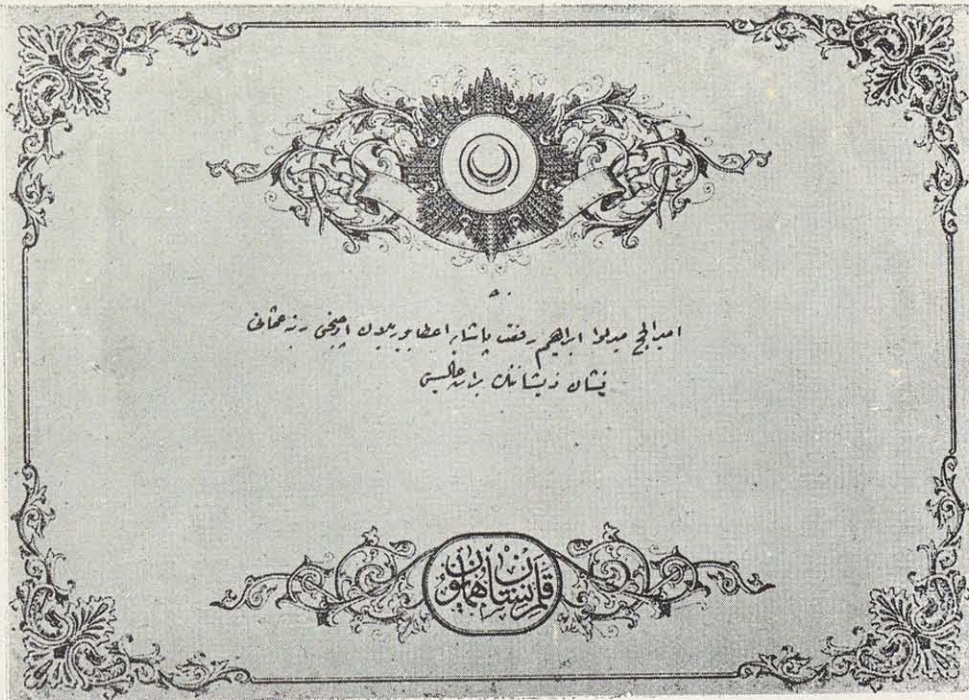 امیر الحج میرلوا ابراهیم رفعت پاشایه اعطا بیوریلان اوچنجی رتبه عثمانی
نشان ذیشاننك براتعالیسی
قلم نیشان همایون